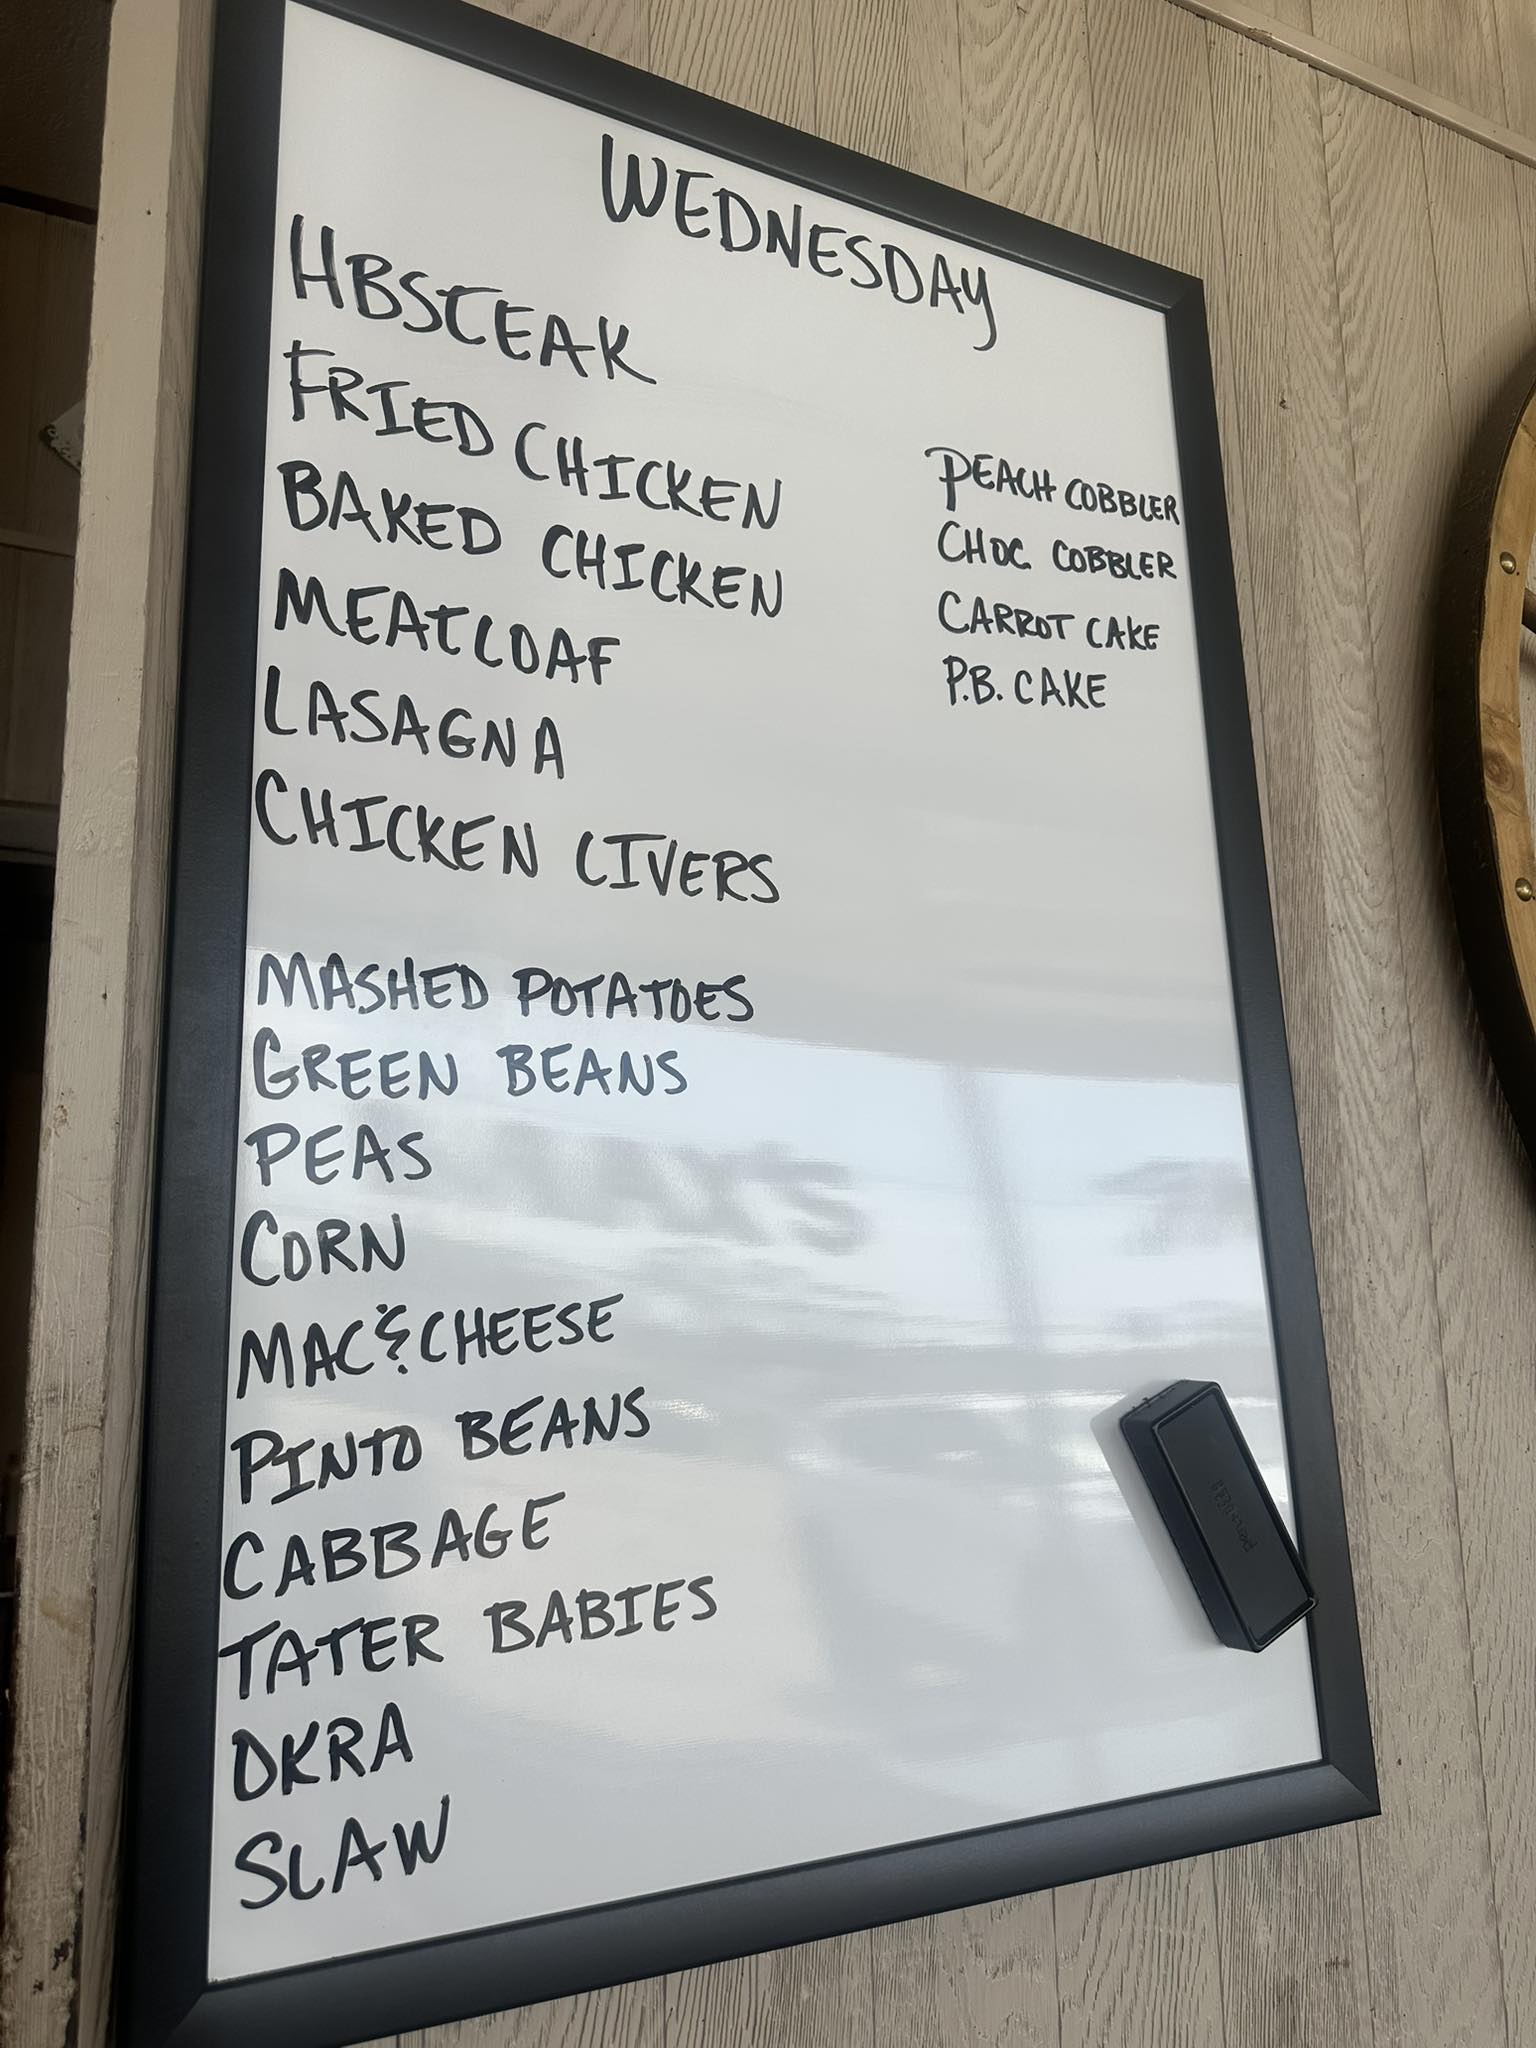 WEDNESDAY
HBSTEAK
FRIED CHICKEN
BAKED CHICKEN
MEATLOAF
LASAGNA
CHICKEN LIVERS
MASHED POTATOES
GREEN BEANS
PEAS
CORN
MAC & CHEESE
PINTO BEANS
CABBAGE
TATER BABIES
OKRA
SLAW
PEACH COBBLER
CHOC. COBBLER
CARROT CAKE
P.B. CAKE